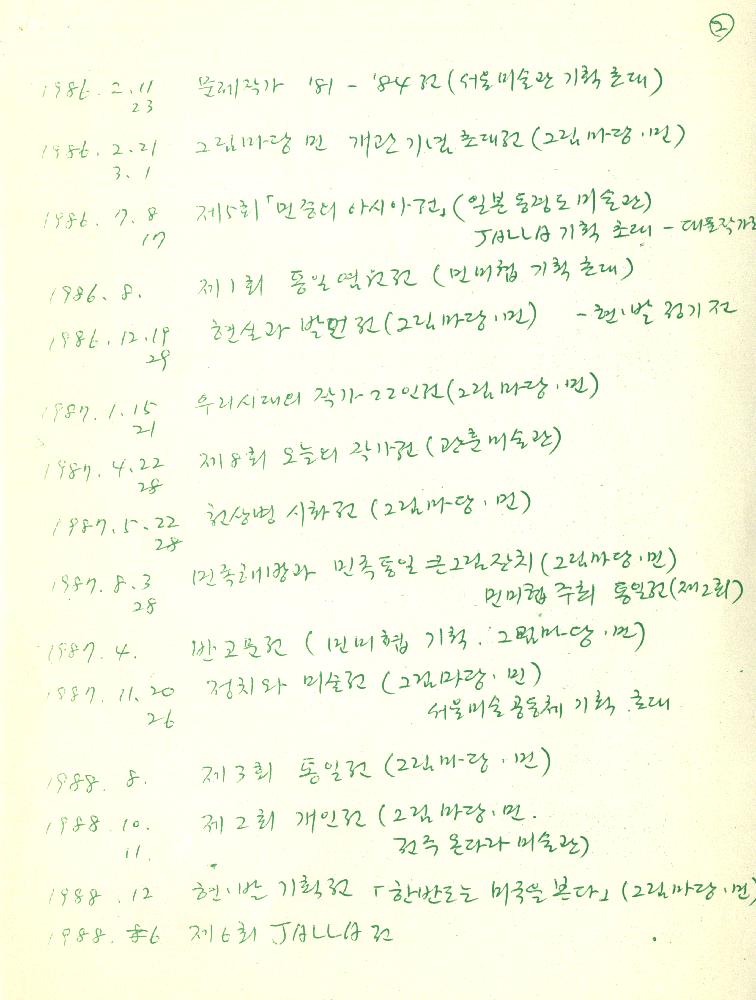 ②
1986. 2. 11 문제작가 '81 - '84전 (서울미술관 기획 초대)
23
1986. 2. 21 그림마당 민 개관기념 초대전 (그림마당·민)
3. 1
1986. 7. 8 제5회 「민중의 아시아전」 (일본 동경도미술관)
17 JALLA 기획 초대 - 대표작가
1986. 8. 제1회 통일염원전 (민미협 기획 초대)
1986. 12. 19 현실과 발언전 (그림마당·민) - 현·발 정기전
29
1987. 1. 15 우리시대의 작가 22인전 (그림마당·민)
21
1987. 4. 22 제8회 오늘의 작가전 (관훈미술관)
28
1987. 5. 22 천상병 시화전 (그림마당·민)
28
1987. 8. 3 민족해방과 민족통일 큰그림잔치 (그림마당·민)
28 민미협 주최 통일전 (제2회)
1987. 4. 반고문전 (민미협 기획. 그림마당·민)
1987. 11. 20 정치와 미술전 (그림마당·민)
26 서울미술공동체 기획 초대
1988. 8. 제3회 통일전 (그림마당·민)
1988. 10. 제2회 개인전 (그림마당·민.
11. 전주 온다라 미술관)
1988. 12 현·발 기획전 「한반도는 미국을 본다」 (그림마당·민)
1988. 6 제6회 JALLA전